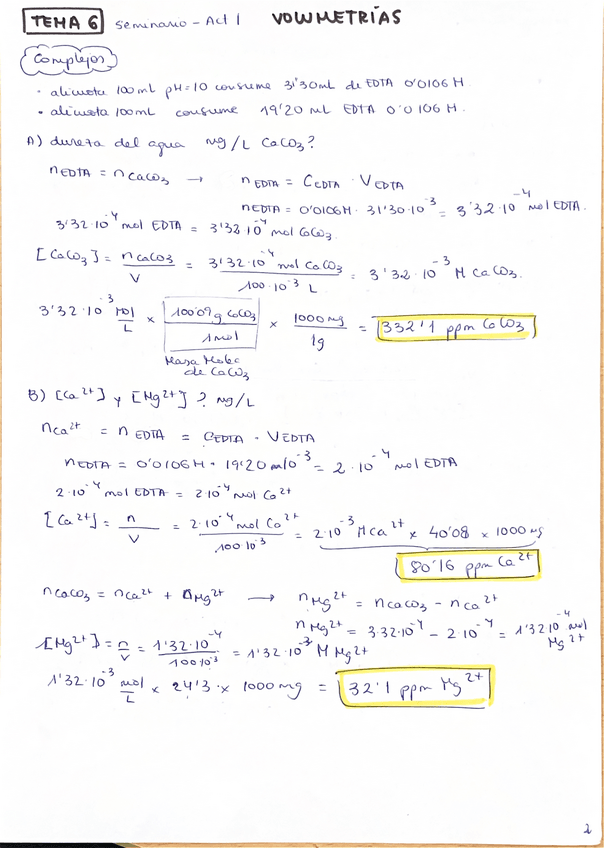 TEMA 6 Seminario - Act 1 VOLUMETRÍAS
Complejos
· alícuota 100 mL pH=10 consume 31'30 mL de EDTA 0'0106 M
· alícuota 100 mL consume 19'20 mL EDTA 0'0106 M.
A) dureza del agua mg/L CaCO3?
n EDTA = n CaCO3 → n EDTA = C EDTA · V EDTA
n EDTA = 0'0106 M · 31'30·10^-3 = 3'32·10^-4 mol EDTA.
3'32·10^-4 mol EDTA = 3'32·10^-4 mol CaCO3.
[CaCO3] = n CaCO3 / V = 3'32·10^-4 mol CaCO3 / 100·10^-3 L = 3'32·10^-3 M CaCO3.
3'32·10^-3 mol/L × 100'09 g CaCO3 / 1 mol × 1000 mg / 1g = 332'1 ppm CaCO3
Masa Molec
de CaCO3
B) [Ca2+] y [Mg2+]? mg/L
n Ca2+ = n EDTA = C EDTA · V EDTA
n EDTA = 0'0106 M · 19'20 ml 10^-3 = 2·10^-4 mol EDTA
2·10^-4 mol EDTA = 2·10^-4 mol Ca2+
[Ca2+] = n / V = 2·10^-4 mol Ca2+ / 100 10^-3 = 2·10^-3 M Ca2+ × 40'08 × 1000 mg
80'16 ppm Ca2+
n CaCO3 = n Ca2+ + n Mg2+ → n Mg2+ = n CaCO3 - n Ca2+
n Mg2+ = 3'32·10^-4 - 2·10^-4 = 1'32 10^-4 mol Mg2+
[Mg2+] = n / V = 1'32·10^-4 / 100 10^-3 = 1'32·10^-3 M Mg2+
1'32·10^-3 mol/L × 24'3 × 1000 mg = 32'1 ppm Mg2+
2